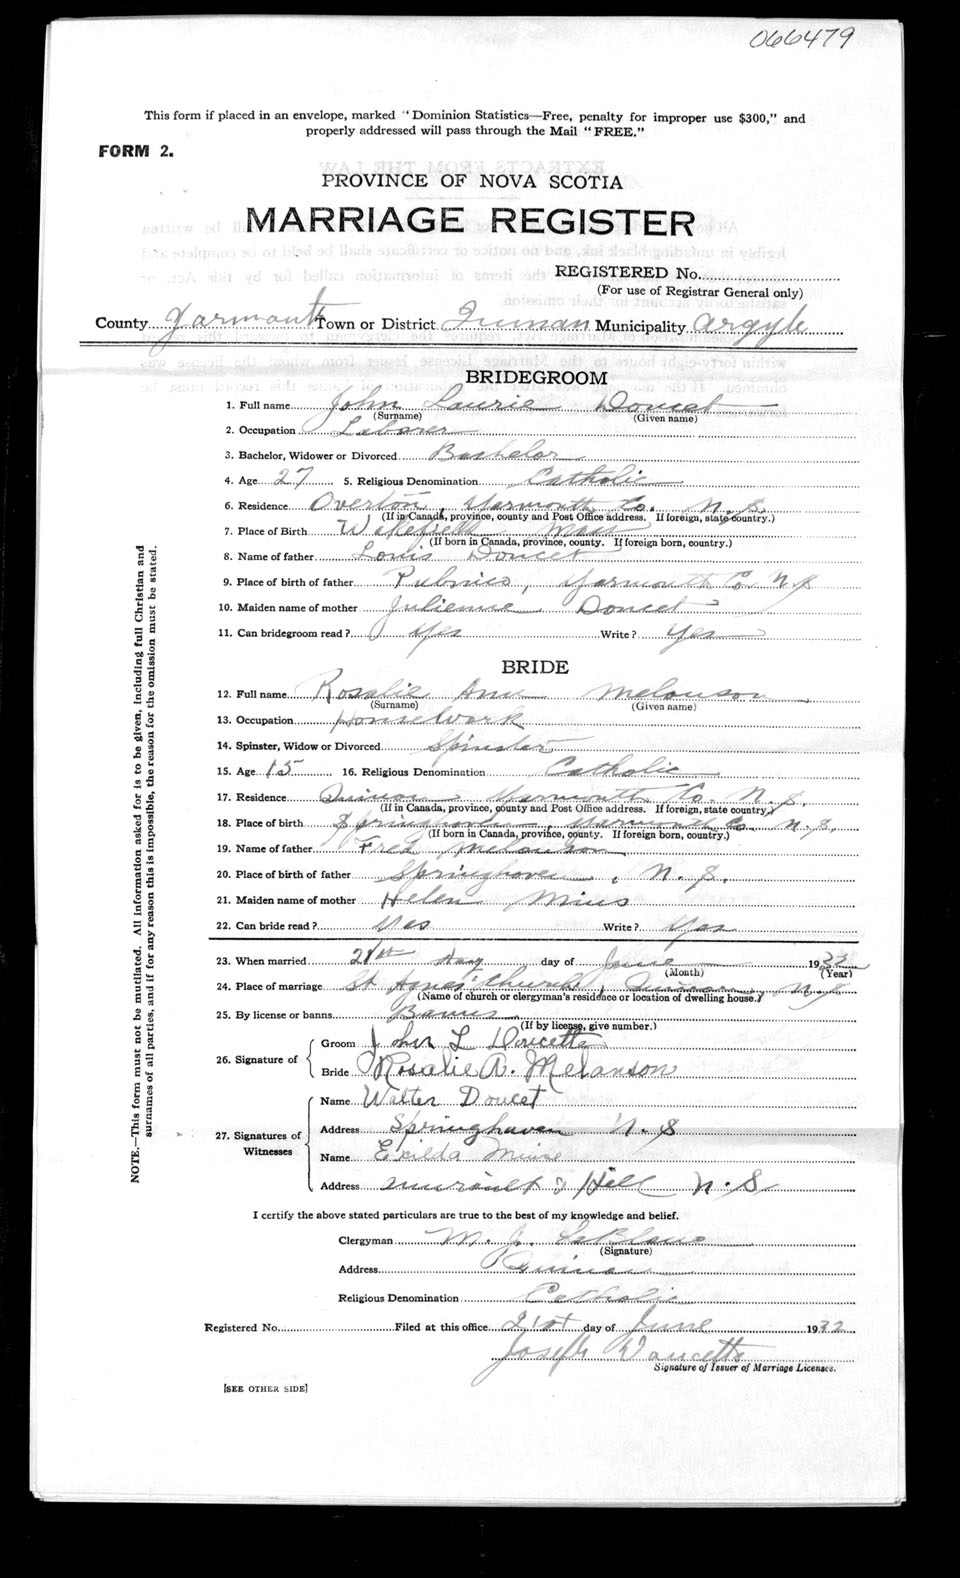 066479
This form if placed in an envelope, marked "Dominion Statistics—Free, penalty for improper use $300," and
properly addressed will pass through the Mail "FREE."
FORM 2.
PROVINCE OF NOVA SCOTIA
MARRIAGE REGISTER
REGISTERED No.
(For use of Registrar General only)
County Yarmouth Town or District Quinan Municipality Argyle
BRIDEGROOM
1. Full name John Laurie Doucet
(Surname) (Given name)
2. Occupation Laborer
3. Bachelor, Widower or Divorced Bachelor
4. Age 27 5. Religious Denomination Catholic
6. Residence Overton, Yarmouth Co. N.S
(If in Canada, province, county and Post Office address. If foreign, state country.)
7. Place of Birth Wakefield Mass
(If born in Canada, province, county. If foreign born, country.)
8. Name of father Louis Doucet
9. Place of birth of father Pubnico, Yarmouth Co. N.S
10. Maiden name of mother Julienne Doucet
11. Can bridegroom read? Yes Write? Yes
BRIDE
12. Full name Rosalie Ann Melanson
(Surname) (Given name)
13. Occupation Housework
14. Spinster, Widow or Divorced Spinster
15. Age 15 16. Religious Denomination Catholic
17. Residence Quinan Yarmouth Co. N.S.
(If in Canada, province, county and Post Office address. If foreign, state country.)
18. Place of birth Springhaven, Yarmouth Co. N.S.
(If born in Canada, province, county. If foreign born, country.)
19. Name of father Fred Melanson
20. Place of birth of father Springhaven, N.S.
21. Maiden name of mother Helen Mius
22. Can bride read? Yes Write? Yes
23. When married 21st day day of June 1932
(Month) (Year)
24. Place of marriage St Agnes Church, Quinan, N.S
(Name of church or clergyman's residence or location of dwelling house.)
25. By license or banns Banns
(If by license, give number.)
26. Signature of Groom John L Doucette
Bride Rosalie A. Melanson
27. Signatures of Witnesses
Name Walter Doucet
Address Springhaven N.S
Name Exilda Muise
Address Hill N.S
I certify the above stated particulars are true to the best of my knowledge and belief.
Clergyman M. J. LeBlanc
(Signature)
Address Quinan
Religious Denomination Catholic
Registered No. Filed at this office 21st day of June 1932
Joseph Doucette
Signature of Issuer of Marriage Licenses.
[SEE OTHER SIDE]
NOTE.—This form must not be mutilated. All information asked for is to be given, including full Christian and
surnames of all parties, and if for any reason this is impossible, the reason for the omission must be stated.